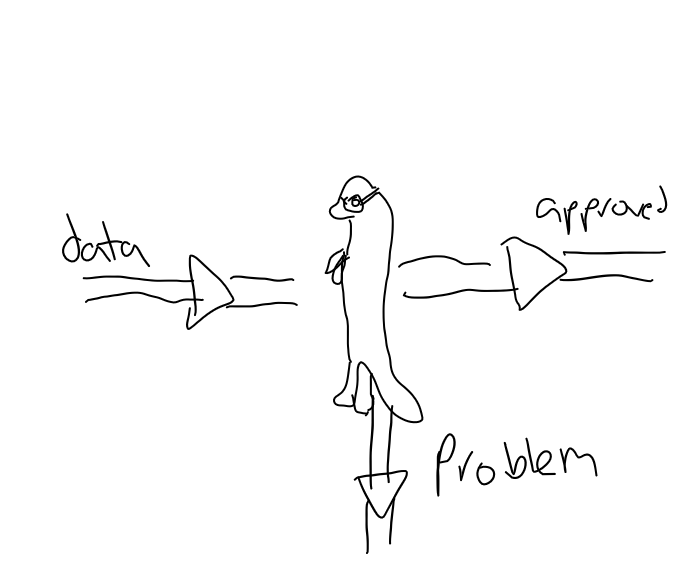 data
approved
Problem